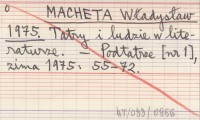 o MACHETA Władysław
1975. Tatry i ludzie w lite-
raturze. - Podtatrze [nr 1],
zima 1975: 55-72.